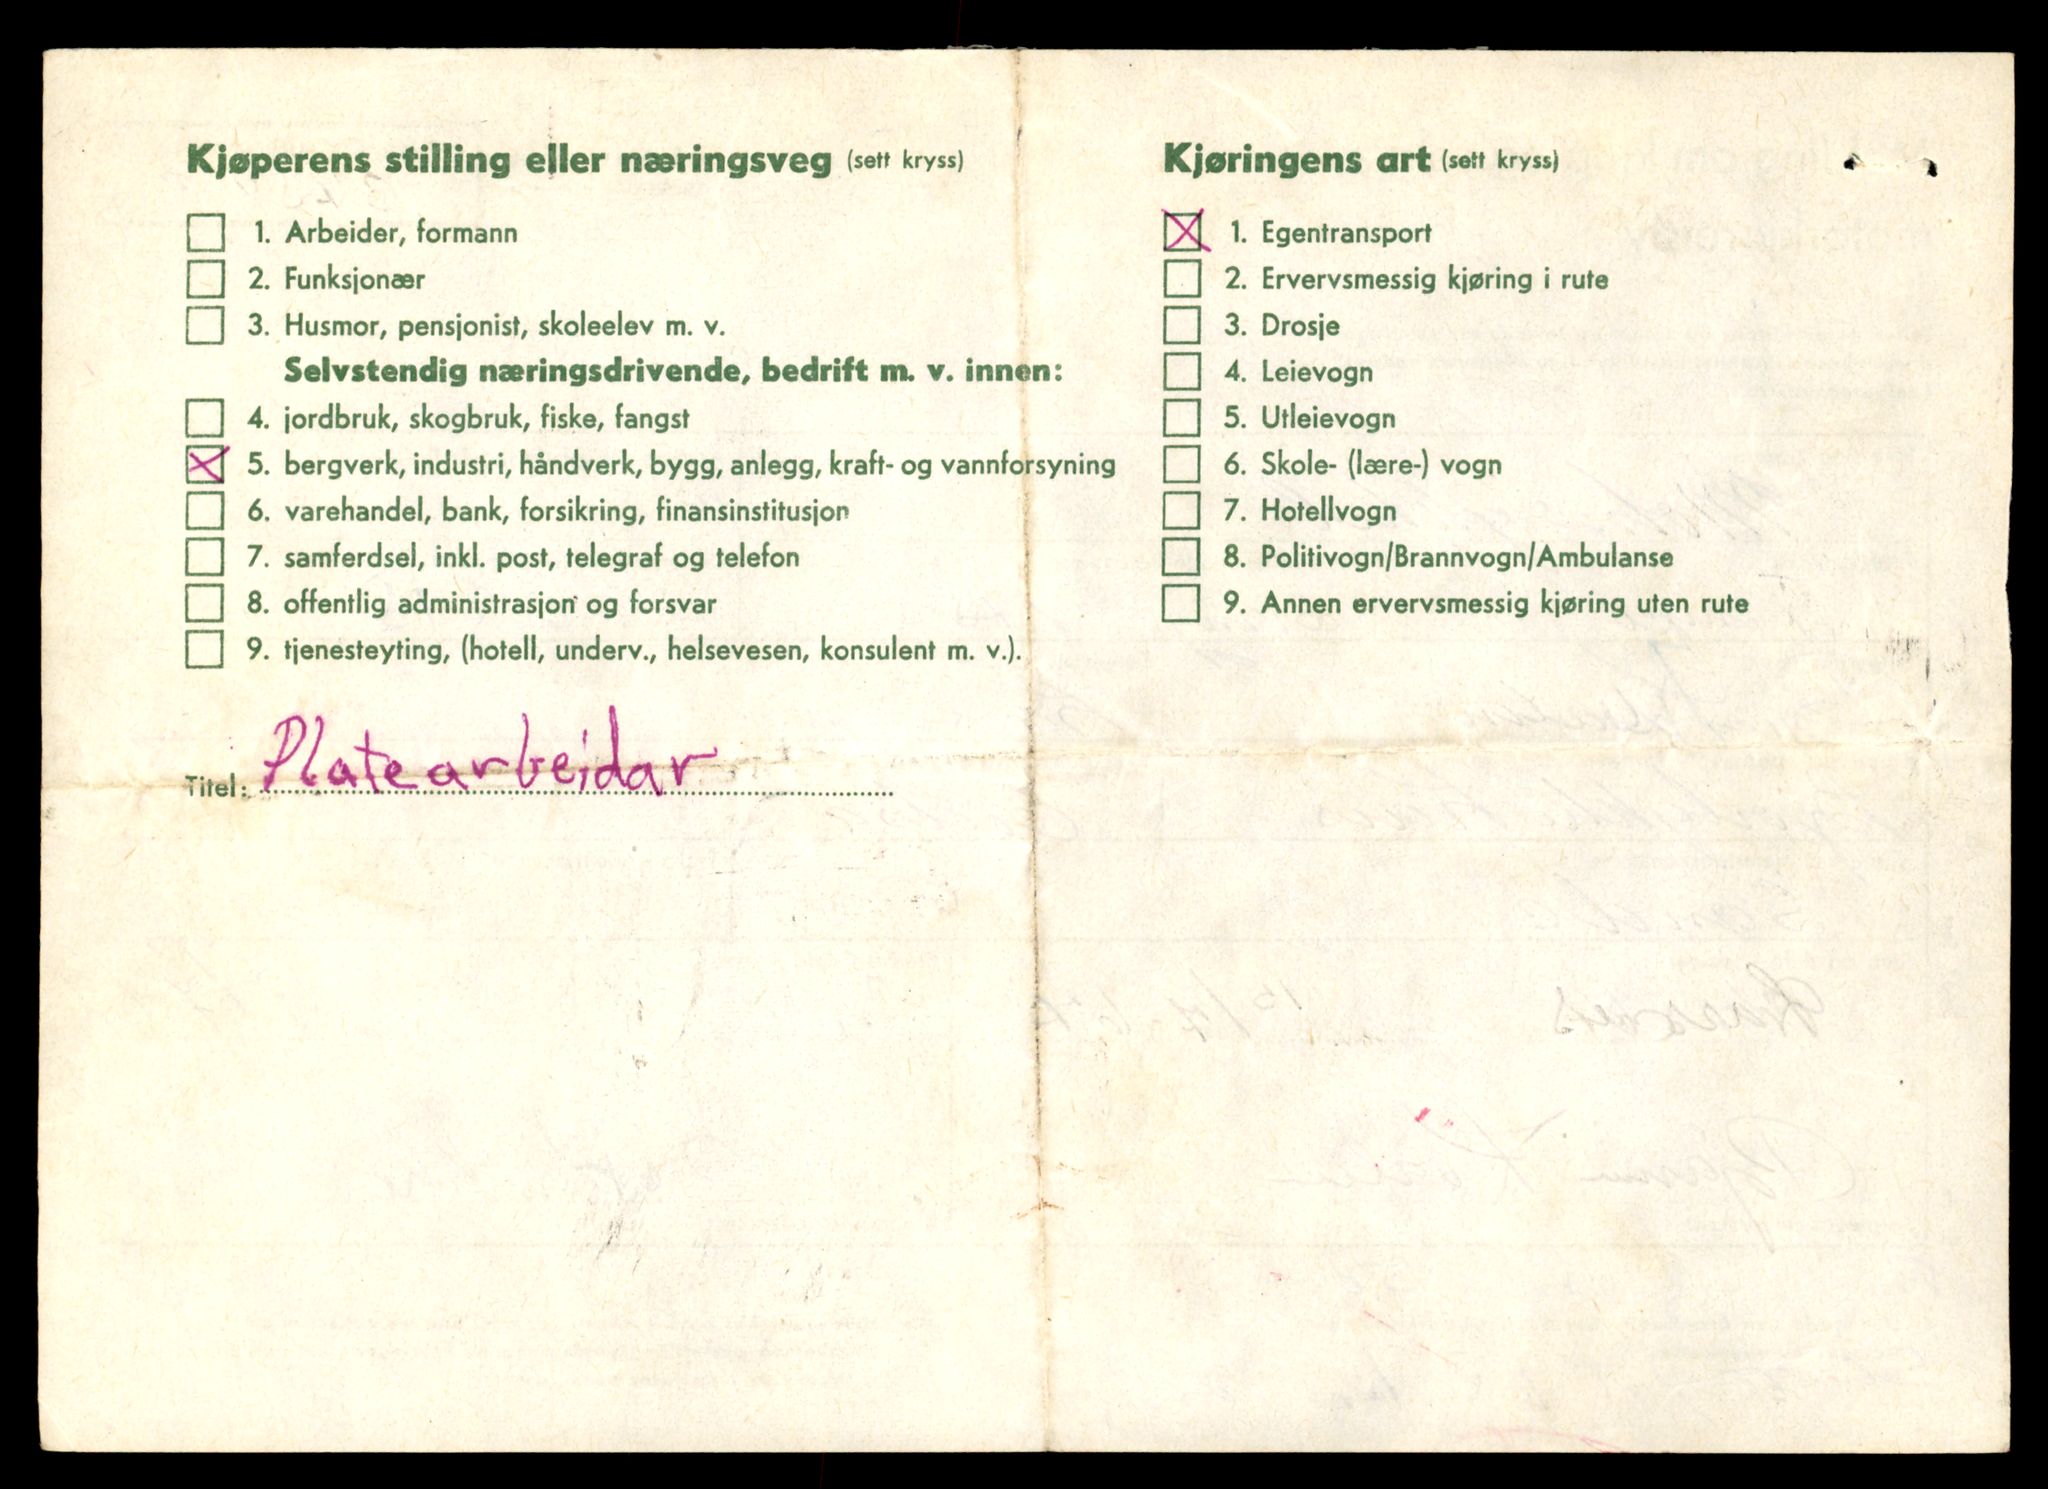 Kjøperens stilling eller næringsveg (sett kryss)
1. Arbeider, formann
2. Funksjonær
3. Husmor, pensjonist, skoleelev m. v.
Selvstendig næringsdrivende, bedrift m. v. innen:
4. jordbruk, skogbruk, fiske, fangst
5. bergverk, industri, håndverk, bygg, anlegg, kraft- og vannforsyning
6. varehandel, bank, forsikring, finansinstitusjon
7. samferdsel, inkl. post, telegraf og telefon
8. offentlig administrasjon og forsvar
9. tjenesteyting, (hotell, underv., helsevesen, konsulent m. v.).
Titel: Platearbeidar
Kjøringens art (sett kryss)
1. Egentransport
2. Ervervsmessig kjøring i rute
3. Drosje
4. Leievogn
5. Utleievogn
6. Skole- (lære-) vogn
7. Hotellvogn
8. Politivogn/Brannvogn/Ambulanse
9. Annen ervervsmessig kjøring uten rute